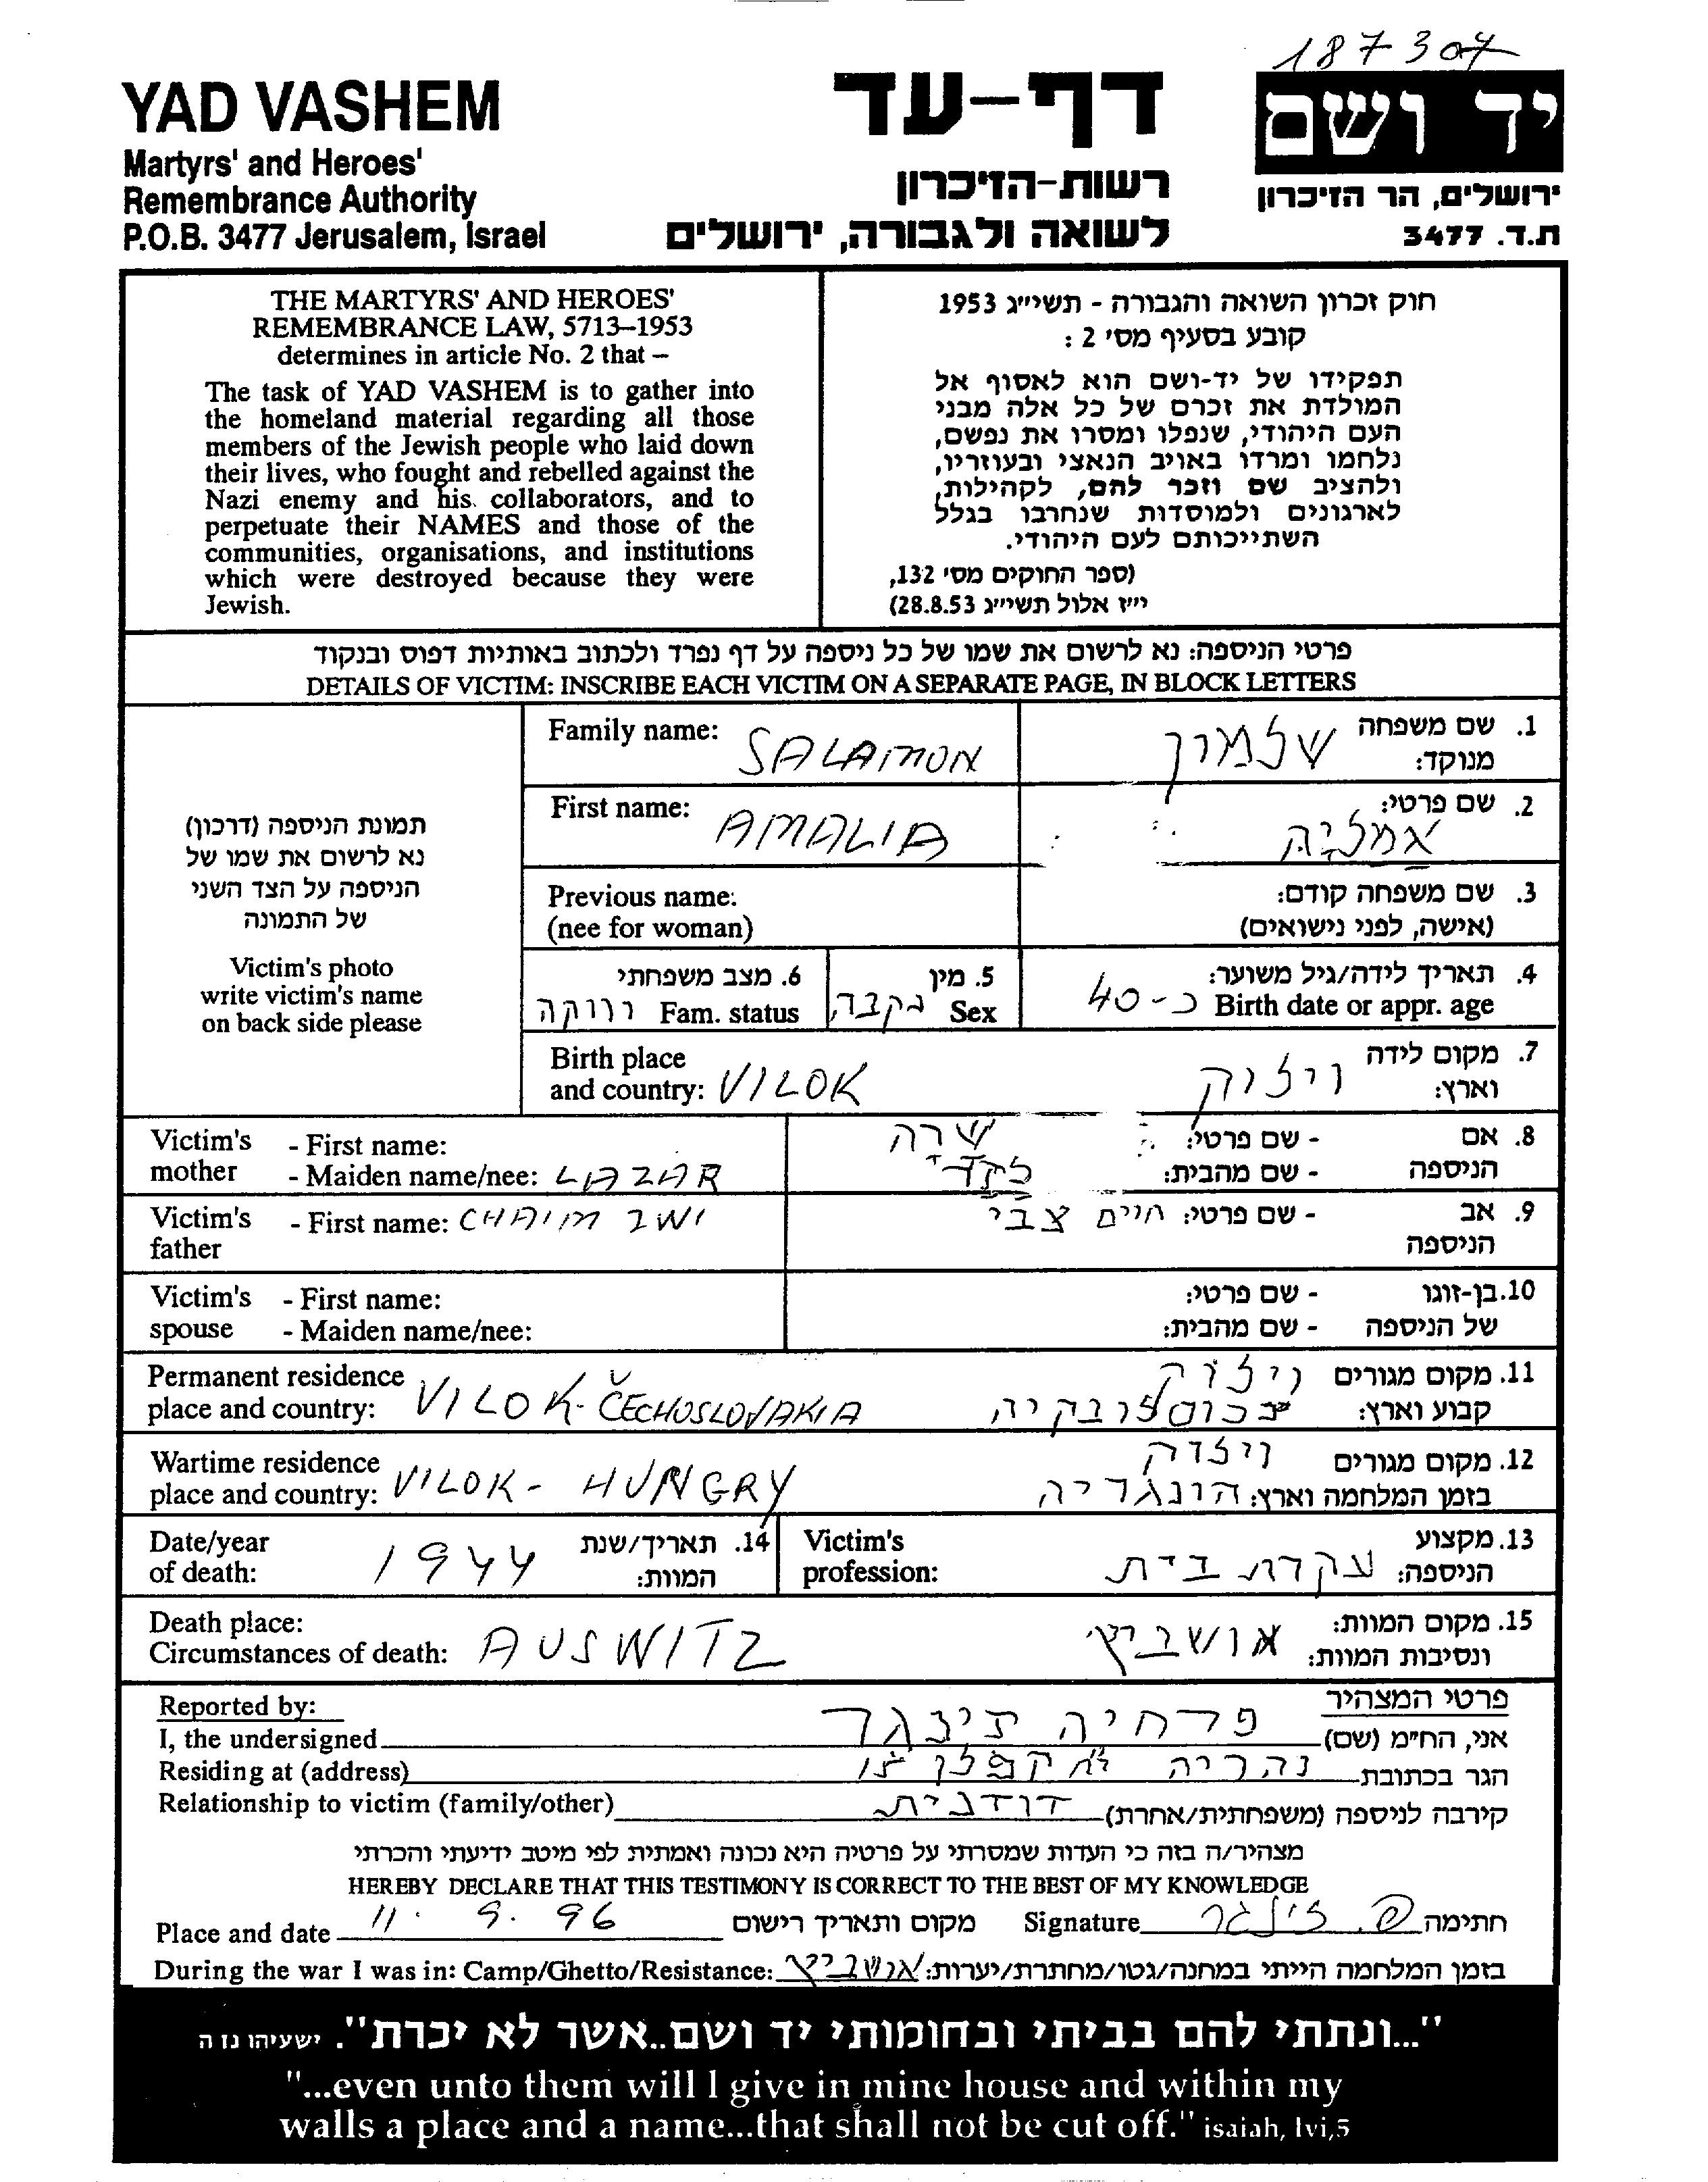 187307
YAD VASHEM
Martyrs' and Heroes'
Remembrance Authority
P.O.B. 3477 Jerusalem, Israel
דף-עד
רשות-הזיכרון
לשואה ולגבורה, ירושלים
יד ושם
ירושלים, הר הזיכרון
ת.ד. 3477
THE MARTYRS' AND HEROES'
REMEMBRANCE LAW, 5713–1953
determines in article No. 2 that –
The task of YAD VASHEM is to gather into
the homeland material regarding all those
members of the Jewish people who laid down
their lives, who fought and rebelled against the
Nazi enemy and his collaborators, and to
perpetuate their NAMES and those of the
communities, organisations, and institutions
which were destroyed because they were
Jewish.
חוק זכרון השואה והגבורה - תשי״ג 1953
קובע בסעיף מס׳ 2 :
תפקידו של יד-ושם הוא לאסוף אל
המולדת את זכרם של כל אלה מבני
העם היהודי, שנפלו ומסרו את נפשם,
נלחמו ומרדו באויב הנאצי ובעוזריו,
ולהציב שם וזכר להם, לקהילות,
לארגונים ולמוסדות שנחרבו בגלל
השתייכותם לעם היהודי.
(ספר החוקים מס׳ 132,
י״ז אלול תשי״ג 28.8.53)
פרטי הניספה: נא לרשום את שמו של כל ניספה על דף נפרד ולכתוב באותיות דפוס ובנקוד
DETAILS OF VICTIM: INSCRIBE EACH VICTIM ON A SEPARATE PAGE, IN BLOCK LETTERS
תמונת הניספה (דרכון)
נא לרשום את שמו של
הניספה על הצד השני
של התמונה
Victim's photo
write victim's name
on back side please
Family name: SALAMON
1. שם משפחה
מנוקד: שלמון
First name: AMALIA
2. שם פרטי: אמליה
Previous name:
(nee for woman)
3. שם משפחה קודם:
(אישה, לפני נישואים)
4. תאריך לידה/גיל משוער:
Birth date or appr. age כ-40
5. מין
Sex נקבה
6. מצב משפחתי
Fam. status רווקה
Birth place
and country: VILOK
7. מקום לידה
וארץ: וילוק
Victim's mother
- First name:
- Maiden name/nee: LAZAR
8. אם הניספה
- שם פרטי: שרה
- שם מהבית:
Victim's father
- First name: CHAIM ZWI
9. אב הניספה
- שם פרטי: חיים צבי
Victim's spouse
- First name:
- Maiden name/nee:
10. בן-זוגו של הניספה
- שם פרטי:
- שם מהבית:
Permanent residence
place and country: VILOK - ČECHOSLOVAKIA
11. מקום מגורים
קבוע וארץ: וילוק
Wartime residence
place and country: VILOK - HUNGRY
12. מקום מגורים
בזמן המלחמה וארץ: וילוק הונגריה
Date/year
of death: 1944
14. תאריך/שנת
המוות:
Victim's
profession:
13. מקצוע
הניספה: עקרת בית
Death place:
Circumstances of death: AUSWITZ
15. מקום המוות:
ונסיבות המוות: אושביץ
Reported by:
פרטי המצהיר
I, the undersigned
אני, הח״מ (שם) פרחיה
Residing at (address)
הגר בכתובת נהריה
Relationship to victim (family/other)
קירבה לניספה (משפחתית/אחרת) דודנית
מצהיר/ה בזה כי העדות שמסרתי על פרטיה היא נכונה ואמתית לפי מיטב ידיעתי והכרתי
HEREBY DECLARE THAT THIS TESTIMONY IS CORRECT TO THE BEST OF MY KNOWLEDGE
Place and date 11. 9. 96 מקום ותאריך רישום
Signature חתימה
During the war I was in: Camp/Ghetto/Resistance: אושביץ :בזמן המלחמה הייתי במחנה/גטו/מחתרת/יערות
"...ונתתי להם בביתי ובחומותי יד ושם..אשר לא יכרת". ישעיהו נז ה
"...even unto them will I give in mine house and within my
walls a place and a name...that shall not be cut off." isaiah, lvi,5